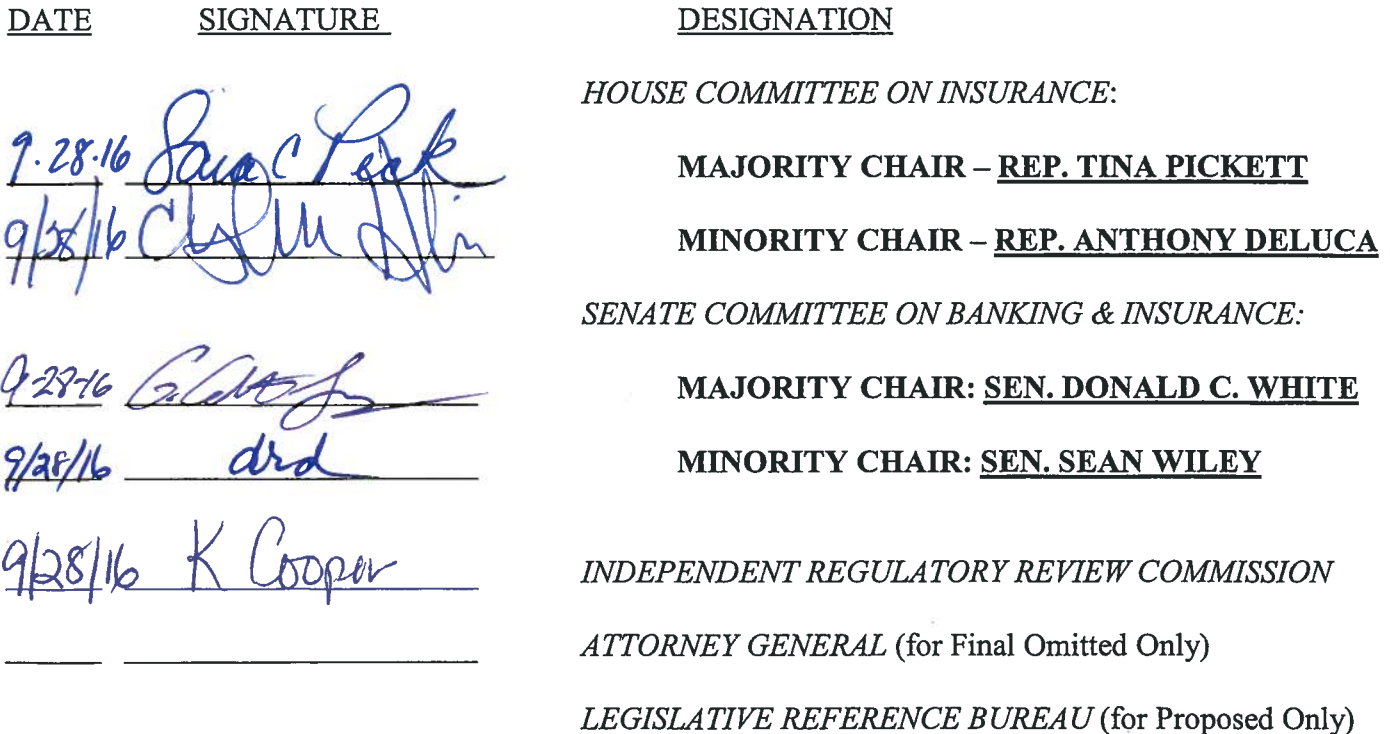 DATE SIGNATURE DESIGNATION
HOUSE COMMITTEE ON INSURANCE:
9.28.16 MAJORITY CHAIR – REP. TINA PICKETT
9/28/16 MINORITY CHAIR – REP. ANTHONY DELUCA
SENATE COMMITTEE ON BANKING & INSURANCE:
9-28-16 MAJORITY CHAIR: SEN. DONALD C. WHITE
9/28/16 drd MINORITY CHAIR: SEN. SEAN WILEY
9/28/16 K Cooper INDEPENDENT REGULATORY REVIEW COMMISSION
ATTORNEY GENERAL (for Final Omitted Only)
LEGISLATIVE REFERENCE BUREAU (for Proposed Only)